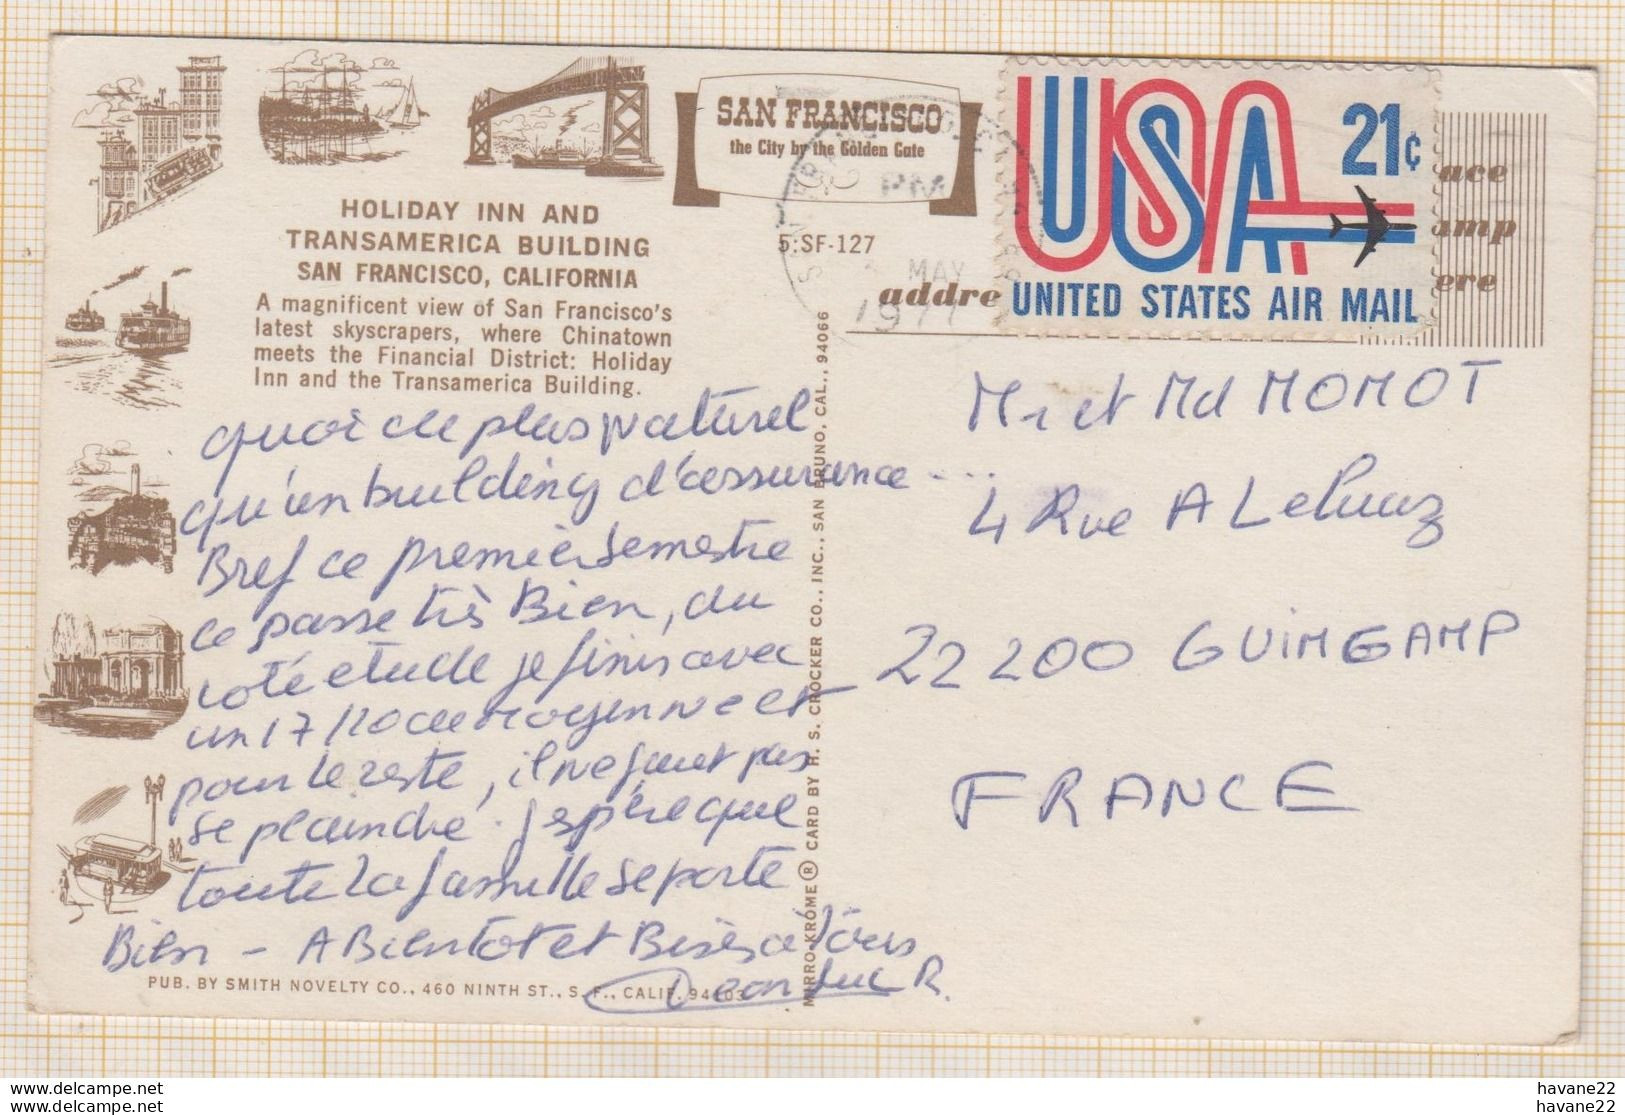 SAN FRANCISCO
the City by the Golden Gate
USA
21¢
UNITED STATES AIR MAIL
PM
MAY
1977
HOLIDAY INN AND
TRANSAMERICA BUILDING
SAN FRANCISCO, CALIFORNIA
A magnificent view of San Francisco's
latest skyscrapers, where Chinatown
meets the Financial District: Holiday
Inn and the Transamerica Building.
5:SF-127
addre
ace
amp
ere
quoi de plus naturel
qu'un building d'assurance ...
Bref ce premier semestre
ce passe très Bien, du
coté etude je finis avec
un 17/20 de moyenne et
pour le reste, il ne faut pas
se plaindre. j'espère que
toute la famille se porte
Bien - A Bientot et Bises à Tous
Jean Luc R.
Mr et Md MOMOT
4 Rue A
22200 GUINGAMP
FRANCE
PUB. BY SMITH NOVELTY CO., 460 NINTH ST., S. F., CALIF. 94103
MIRRO-KROME ® CARD BY H. S. CROCKER CO., INC., SAN BRUNO, CAL., 94066
www.delcampe.net
www.delcampe.net
havane22
havane22